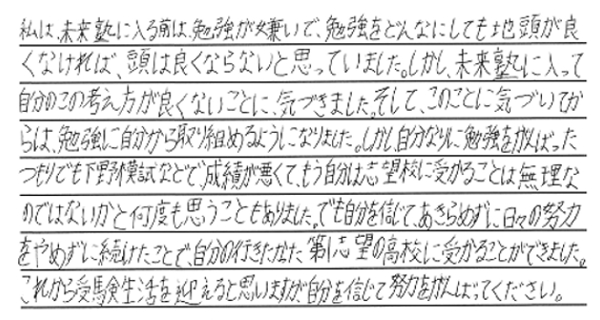 私は、未来塾に入る前は、勉強が嫌いで、勉強をどんなにしても地頭が良
くなければ、頭は良くならないと思っていました。しかし、未来塾に入って
自分のこの考え方が良くないことに、気づきました。そして、このことに気づいてか
らは、勉強に自分から取り組めるようになりました。しかし自分なりに勉強をがんばった
つもりでも下野模試などで、成績が悪くて、もう自分は志望校に受かることは無理な
のではないかと何度も思うこともありました。でも自分を信じて、あきらめずに日々の努力
をやめずに続けたことで、自分の行きたかた第1志望の高校に受かることができました。
これから受験生活を迎えると思いますが自分を信じて努力をがんばってください。